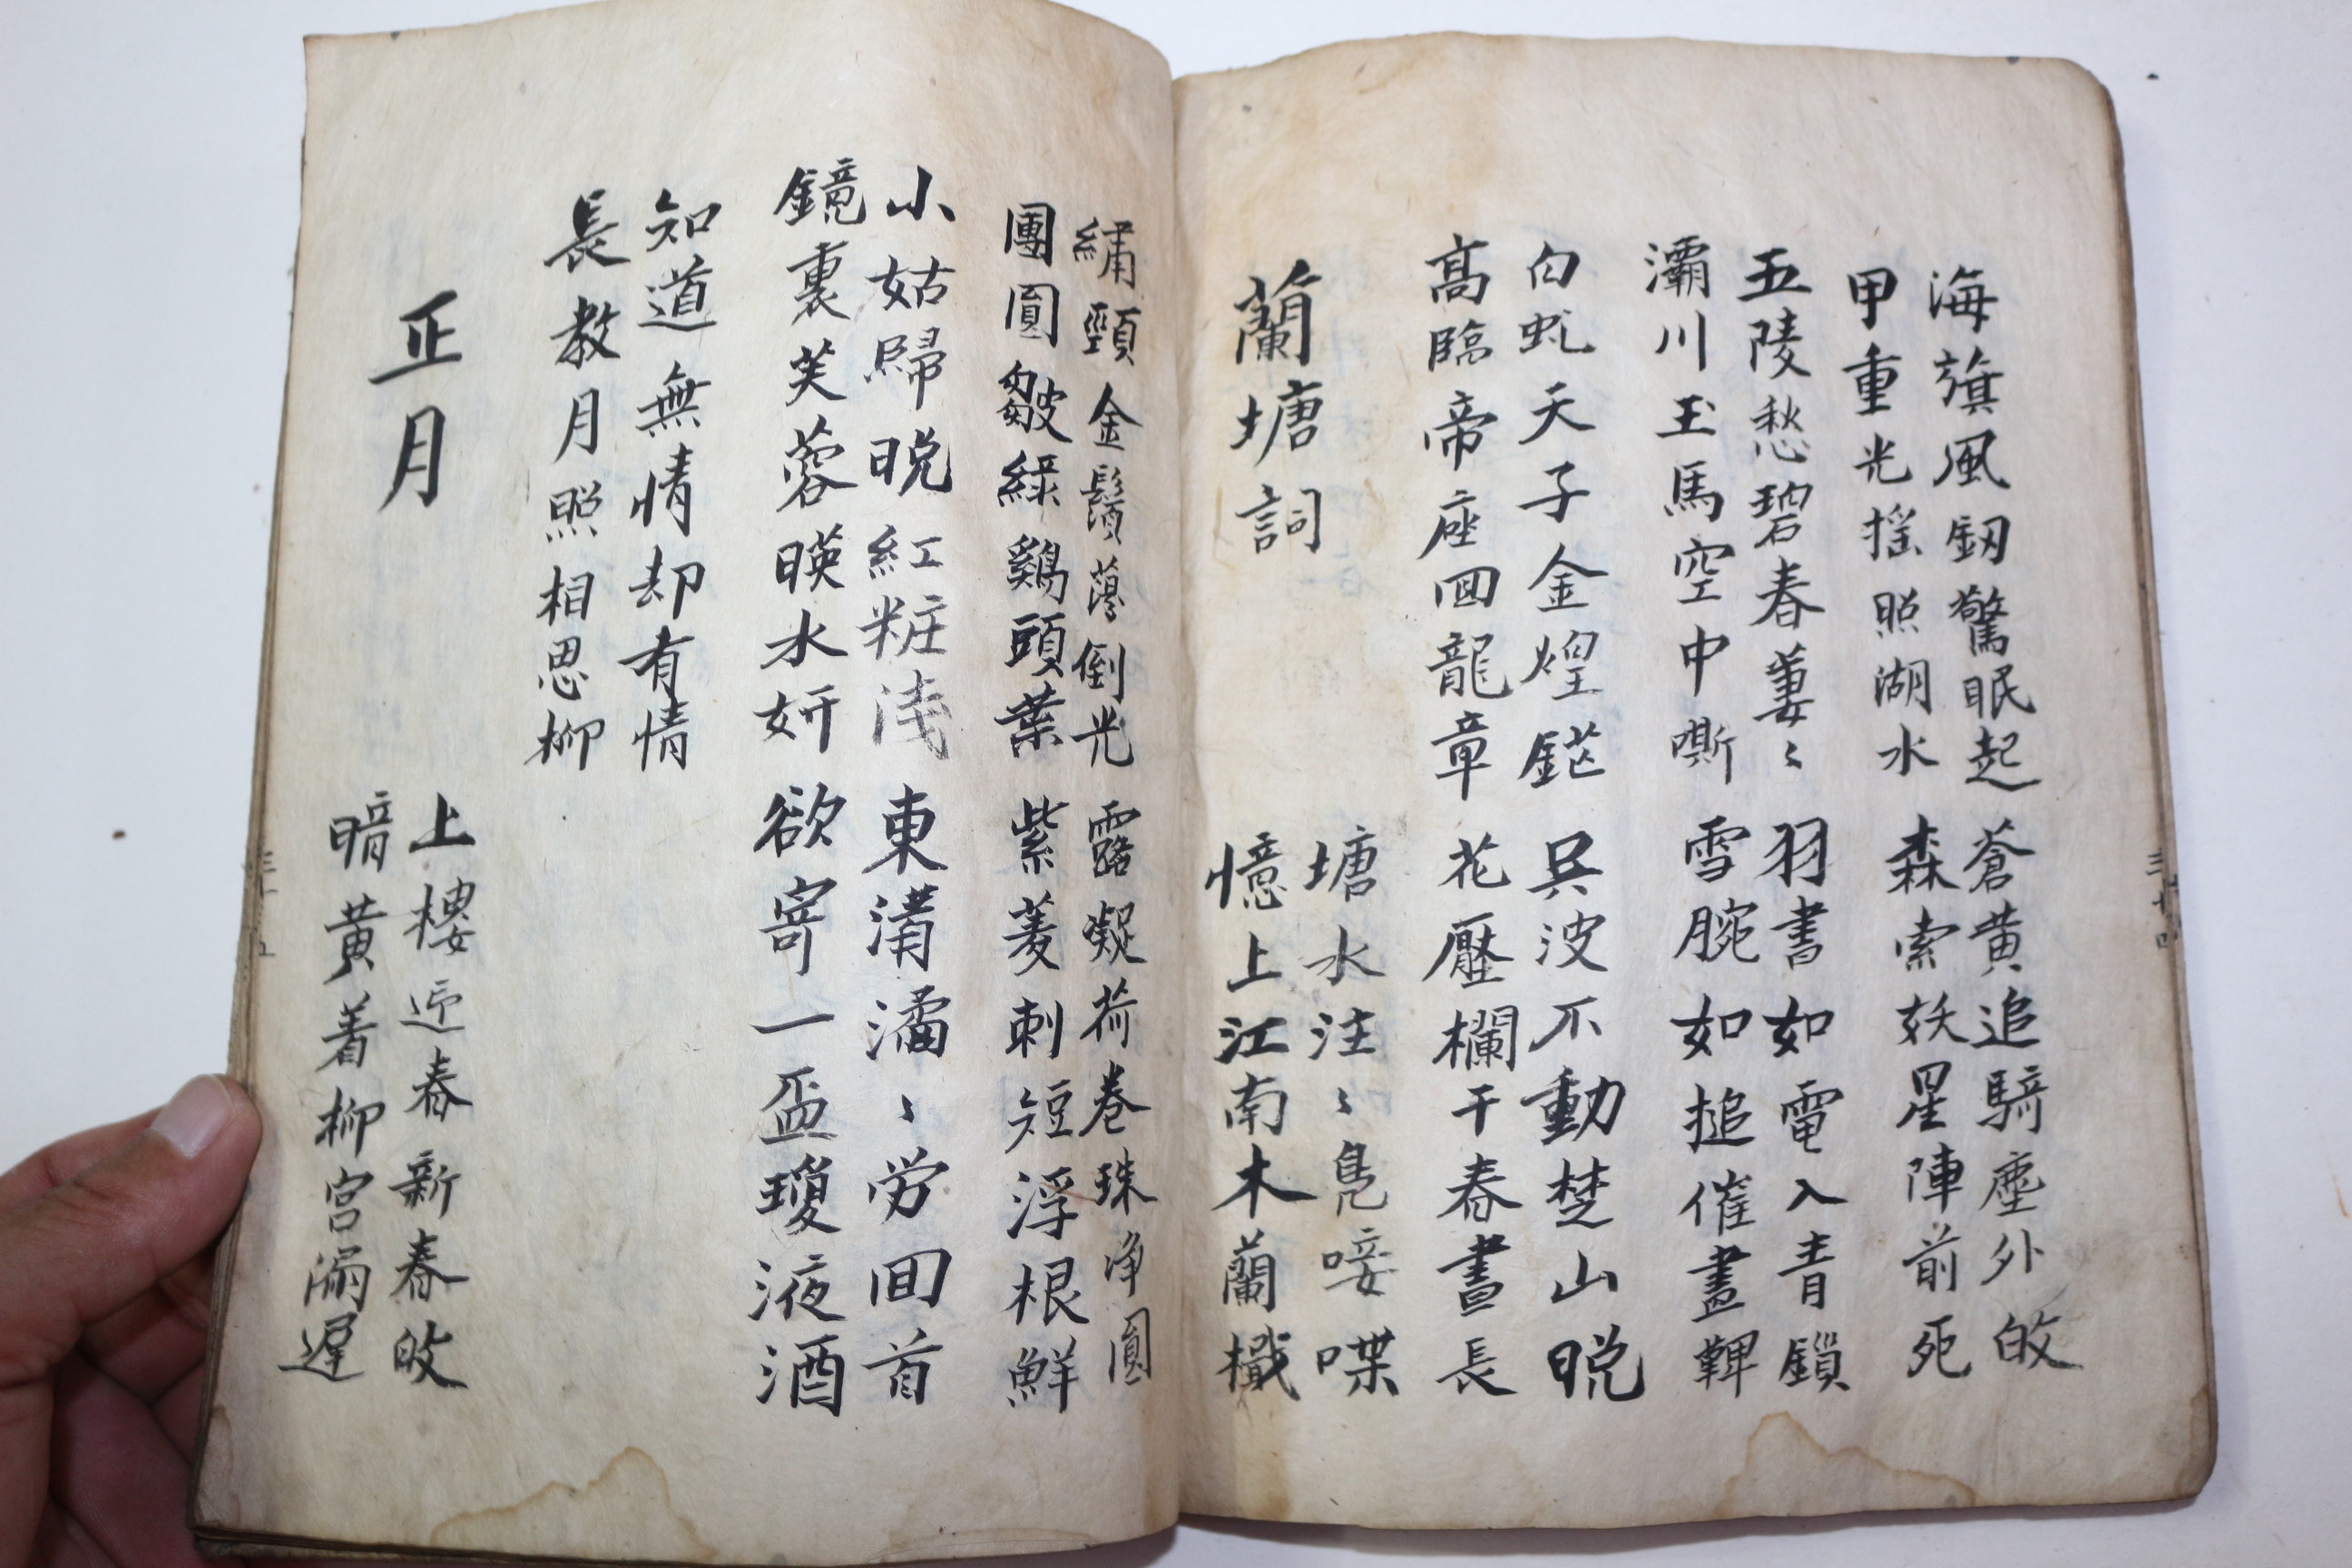 海旗風釼驚眠起 蒼黄追騎塵外皈
甲重光揺照湖水 森索妖星陣前死
五陵愁碧春萋〻 羽書如電入青鎖
灞川玉馬空中嘶 雪腕如搥催畫鞞
白虬天子金煌鋩 吳波不動楚山晚
高臨帝座回龍章 花壓欄干春晝長
蘭塘詞
塘水汪〻鳧唼喋
憶上江南木蘭檝
繡頸金鬚蕩倒光 露凝荷卷珠净圓
團圓皺綠鷄頭葉 紫菱刺短浮根鮮
小姑歸晚紅粧淺 東溝潏〻労回首
鏡裏芙蓉暎水妍 欲寄一盃瓊液酒
知道無情却有情
長教月照相思柳
正月
上樓迎春新春皈
暗黄着柳宮漏遲